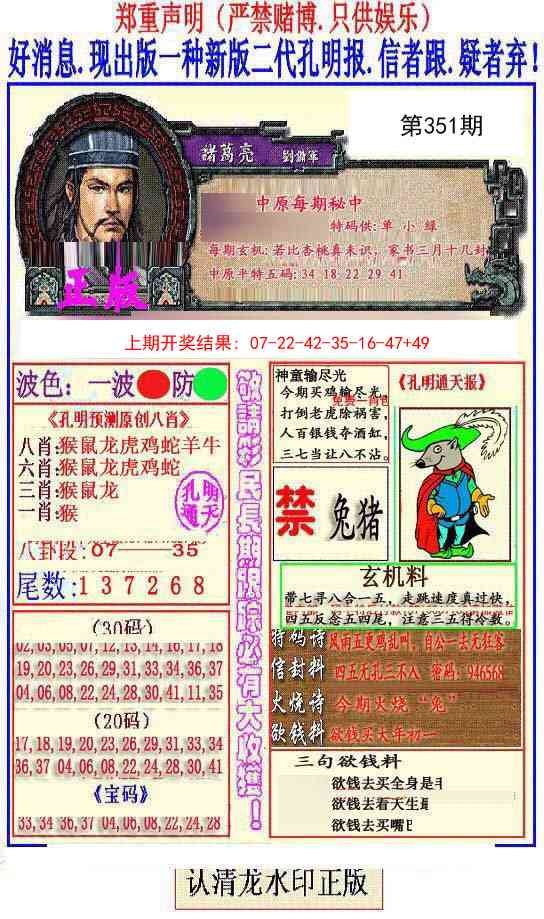 郑重声明（严禁赌博.只供娱乐）
好消息.现出版一种新版二代孔明报.信者跟.疑者弃!
第351期
諸葛亮 劉備軍
中原每期秘中
特码供:单 小 緑
每期玄机:若比杏桃真未识，家书三月十几封
中原平特五码:34 18 22 29 41
正版
上期开奖结果：07-22-42-35-16-47+49
波色：一波 防
《孔明预测原创八肖》
八肖:猴鼠龙虎鸡蛇羊牛
六肖:猴鼠龙虎鸡蛇
三肖:猴鼠龙
一肖:猴
孔明
通天
八卦段:07——35
尾数:137268
(30码)
02,03,05,07,12,13,14,16,17,18
19,20,23,26,29,31,33,34,36,37
04,06,08,22,24,28,30,41,11,35
(20码)
17,18,19,20,23,26,29,31,33,34
36,37 04,06,08,22,24,28,30,41
《宝码》
33,34 36,37 04,06,08,22,24,28
敬請彩民長期跟踪必有大收獲！
神童输尽光
今期买鸡输尽光
打倒老虎除祸害,
人百银钱夺酒缸,
三七当让八不沾。
《孔明通天报》
禁 兔猪
玄机料
带七寻八合一五，走跳速度真过快,
四五反怱五四尾，注意三五得冷数。
特码诗 风雨五更鸡乱叫，自公一去无狂客
信封料 四五无孔三不入 密码：946568
火烧诗 今期火烧“兔”
欲钱料 欲钱买大年初一
三句欲钱料
欲钱去买全身是
欲钱去看天生
欲钱去买嘴
认清龙水印正版